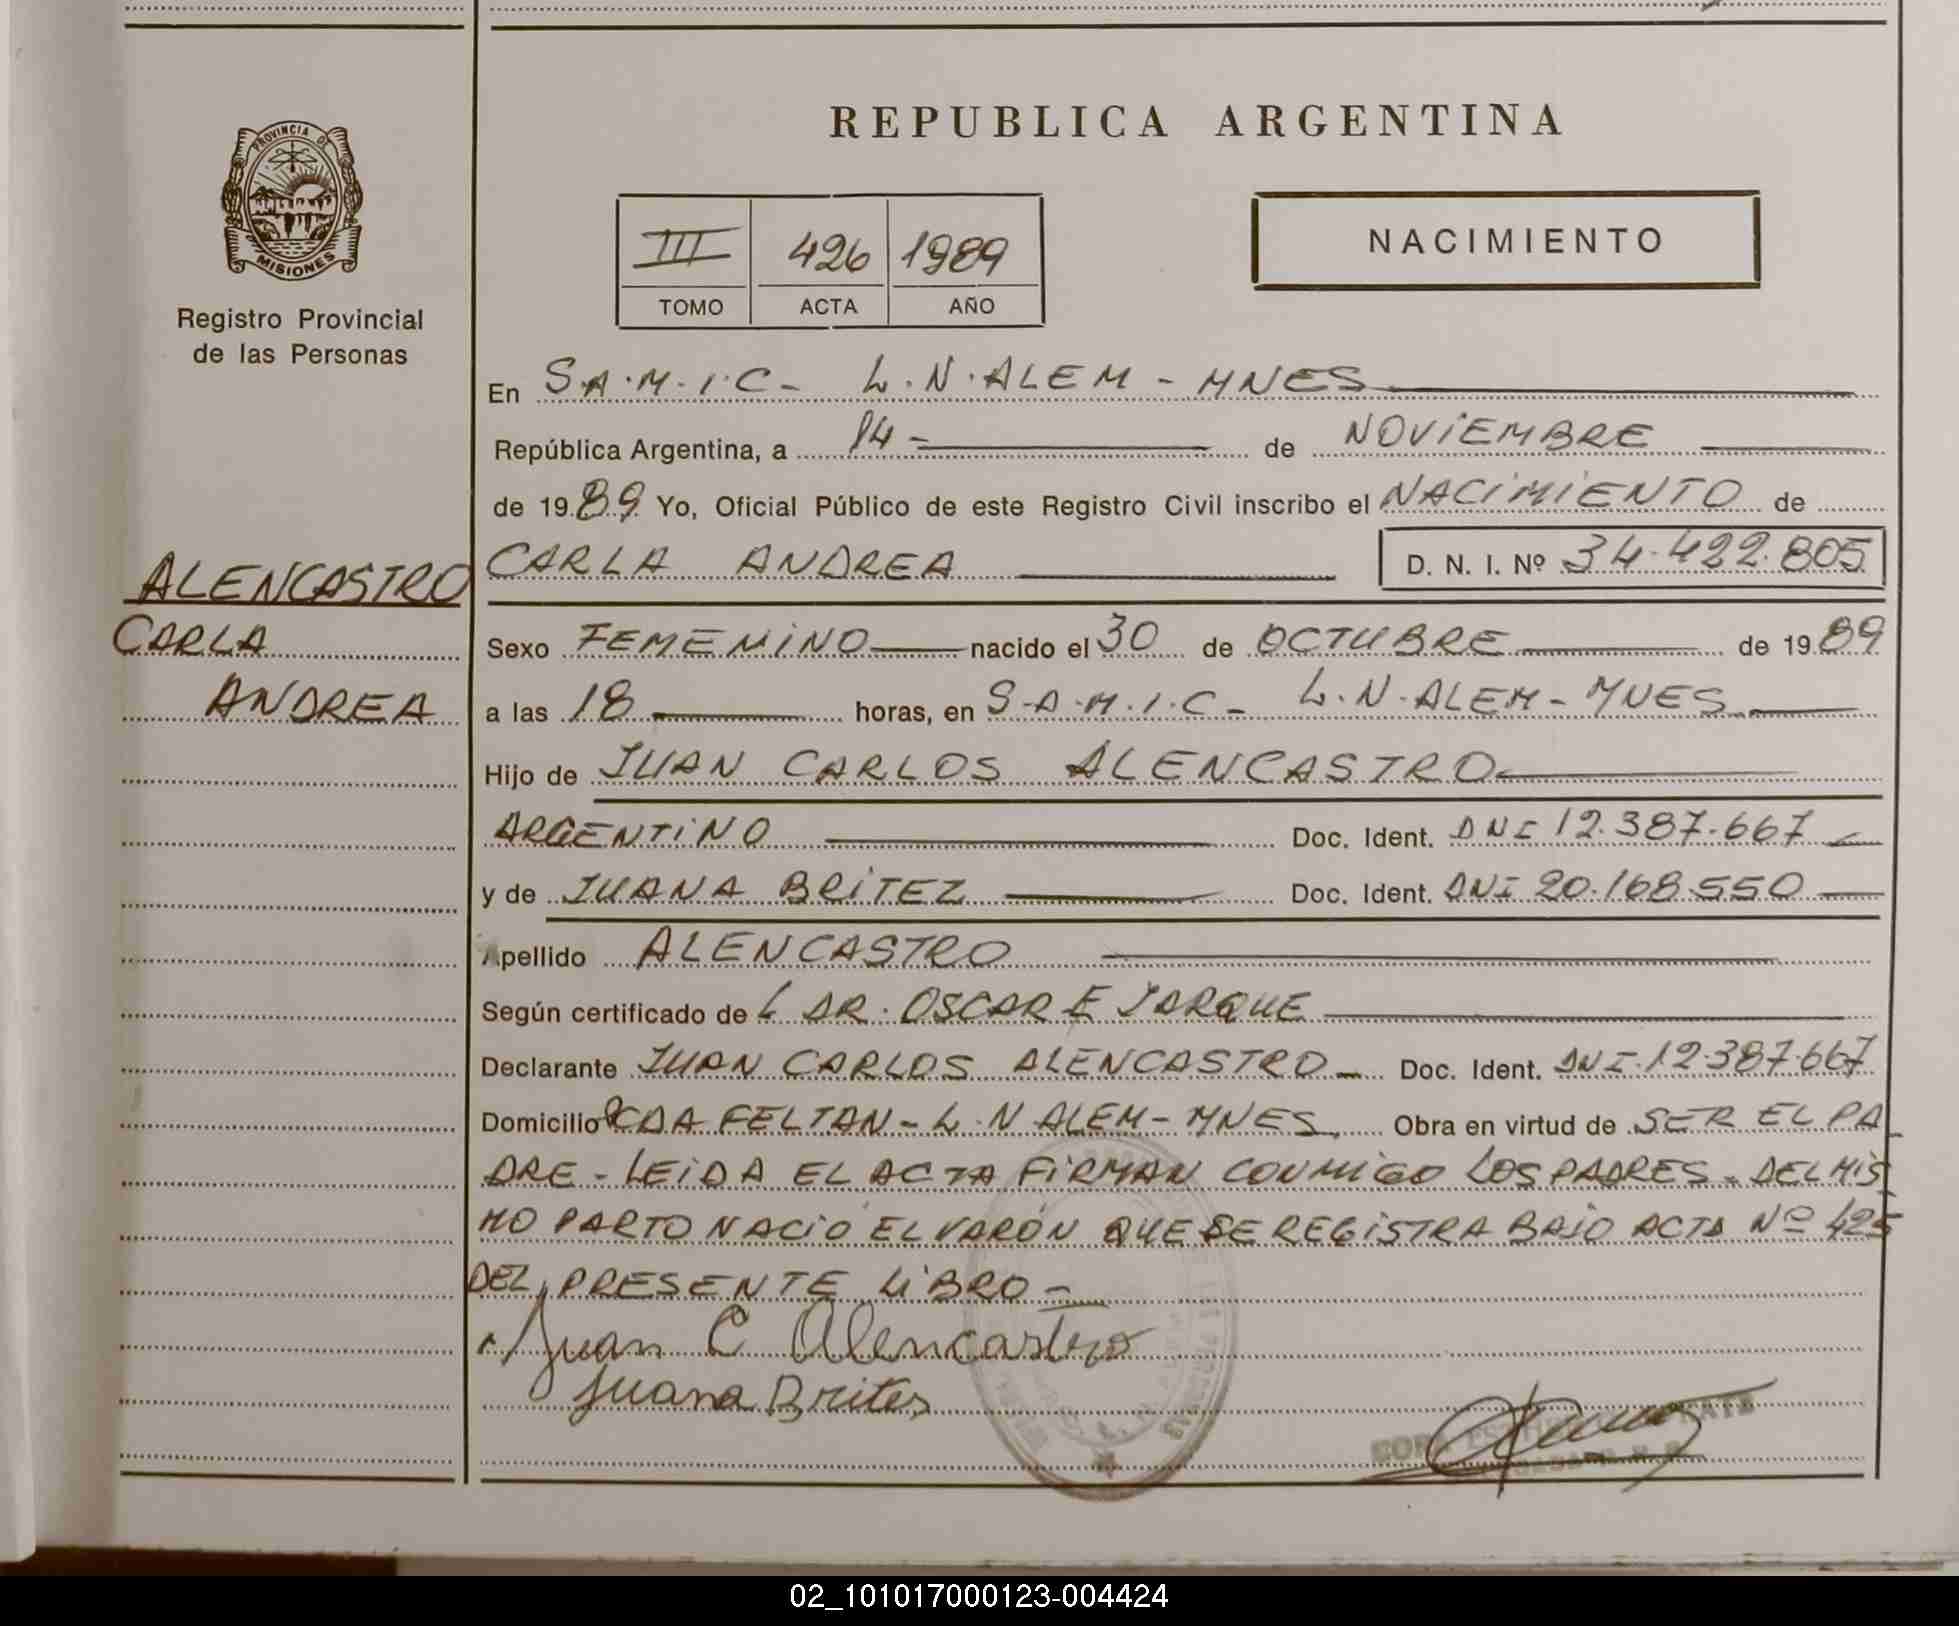 REPUBLICA ARGENTINA
PROVINCIA DE
MISIONES
Registro Provincial
de las Personas
III 426 1989
TOMO ACTA AÑO
NACIMIENTO
En S.A.M.I.C- L.N.ALEM - MNES
República Argentina, a 14- de NOViEMBRE
de 1989 Yo, Oficial Público de este Registro Civil inscribo el NACiMiENTO de
ALENCASTRO
CARLA
ANDREA
CARLA ANDREA D. N. I. Nº 34.422.805
Sexo FEMENiNO nacido el 30 de OCTUBRE de 1989
a las 18 horas, en S.A.M.I.C- L.N.ALEM- MNES
Hijo de JUAN CARLOS ALENCASTRO
ARGENTiNO Doc. Ident. DNI 12.387.667
y de JUANA BRiTEZ Doc. Ident. DNI 20.168.550
Apellido ALENCASTRO
Según certificado de L DR. OSCAR E JARQUE
Declarante JUAN CARLOS ALENCASTRO- Doc. Ident. DNI.12.387.667
Domicilio PCDA FELTAN- L.N ALEM- MNES Obra en virtud de SER EL PA
DRE - LEiDA EL ACTA FiRMAN CONMiGO LOS PADRES - DEL MiS
MO PARTO NACiO EL VARÓN QUE SE REGiSTRA BAJO ACTA Nº 425
DEL PRESENTE LiBRO-
Juan C Alencastro
Juana Brites
02_101017000123-004424